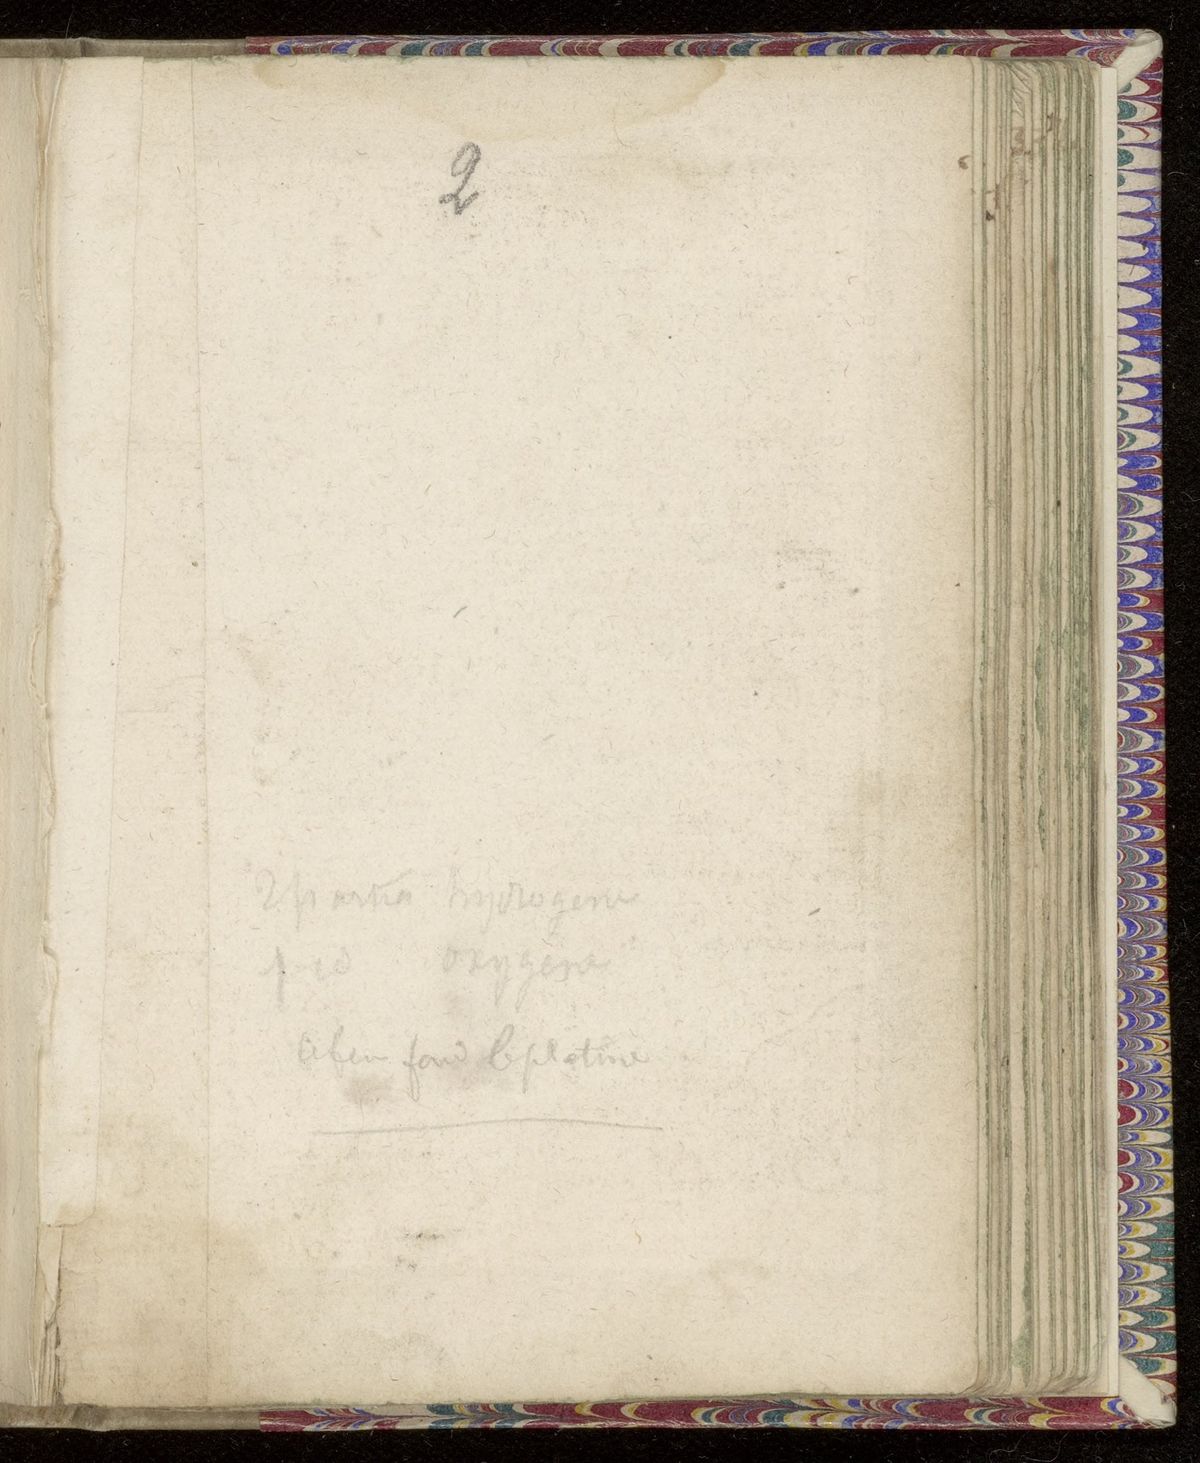 2
2 partia hydrogene
1 id oxygene
a feu fond le platine